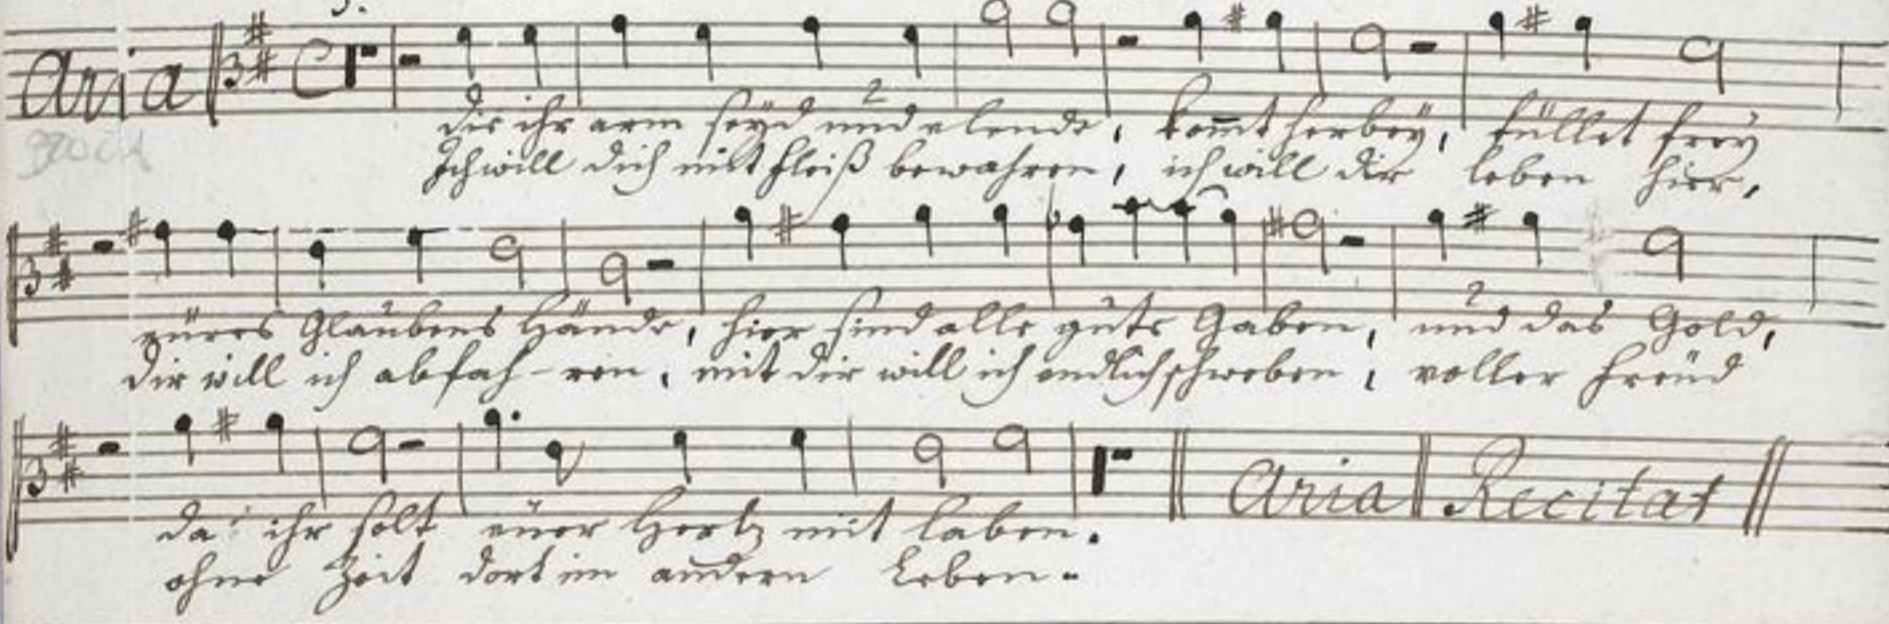 3.
Aria
die ihr arm seyd und elende, kom̄t herbey, füllet frey
Ich will dich mit fleiß bewahren, ich will dir leben hier,
eüres Glaubens Hände, hier sind alle gute Gaben, und das Gold,
dir will ich abfah-ren, mit dir will ich endlich schweben, voller freüd
da ihr solt eüer Hertz mit laben. Aria Recitat
ohne Zeit dort im andern Leben.